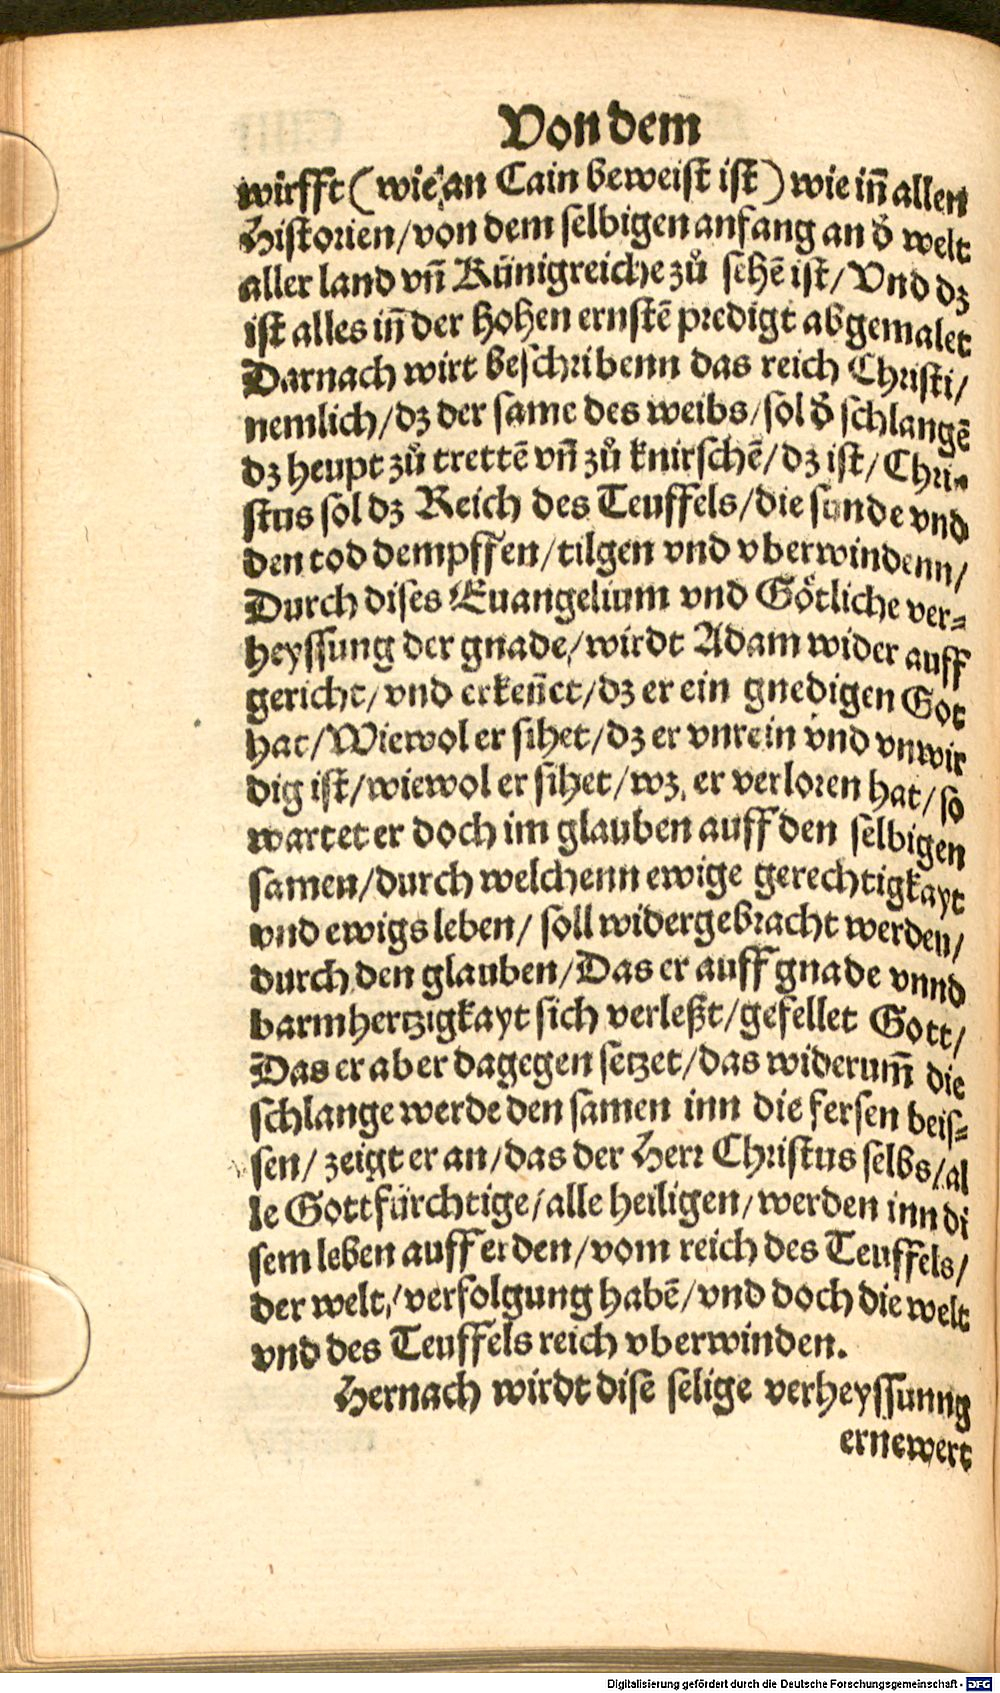 Von dem
wirfft (wie an Cain beweist ist) wie iñ allen
Historien/von dem selbigen anfang an d̾ welt
aller land vñ Künigreiche zů sehē ist/Vnd dz
ist alles iñ der hohen ernstē predigt abgemalet
Darnach wirt beschribenn das reich Christi/
nemlich/dz der same des weibs/sol d̾ schlangē
dz heupt zů trettē vñ zů knirschē/dz ist/Chri-
stus sol dz Reich des Teuffels/die sunde vnd
den tod dempffen/tilgen vnd vberwindenn/
Durch dises Euangelium vnd Götliche ver-
heyssung der gnade/wirdt Adam wider auff
gericht/vnd erkeñet/dz er ein gnedigen Got
hat/Wiewol er sihet/dz er vnrein vnd vnwir
dig ist/wiewol er sihet/wz er verloren hat/so
wartet er doch im glauben auff den selbigen
samen/durch welchenn ewige gerechtigkayt
vnd ewigs leben/soll widergebracht werden/
durch den glauben/Das er auff gnade vnnd
barmhertzigkayt sich verleßt/gefellet Gott/
Das er aber dagegen setzet/das widerum̃ die
schlange werde den samen inn die fersen beis-
sen/zeigt er an/das der Herr Christus selbs/al
le Gottfürchtige/alle heiligen/werden inn di
sem leben auff erden/vom reich des Teuffels/
der welt/verfolgung habē/vnd doch die welt
vnd des Teuffels reich vberwinden.
Hernach wirdt dise selige verheyssunng
ernewert
Digitalisierung gefördert durch die Deutsche Forschungsgemeinschaft - DFG